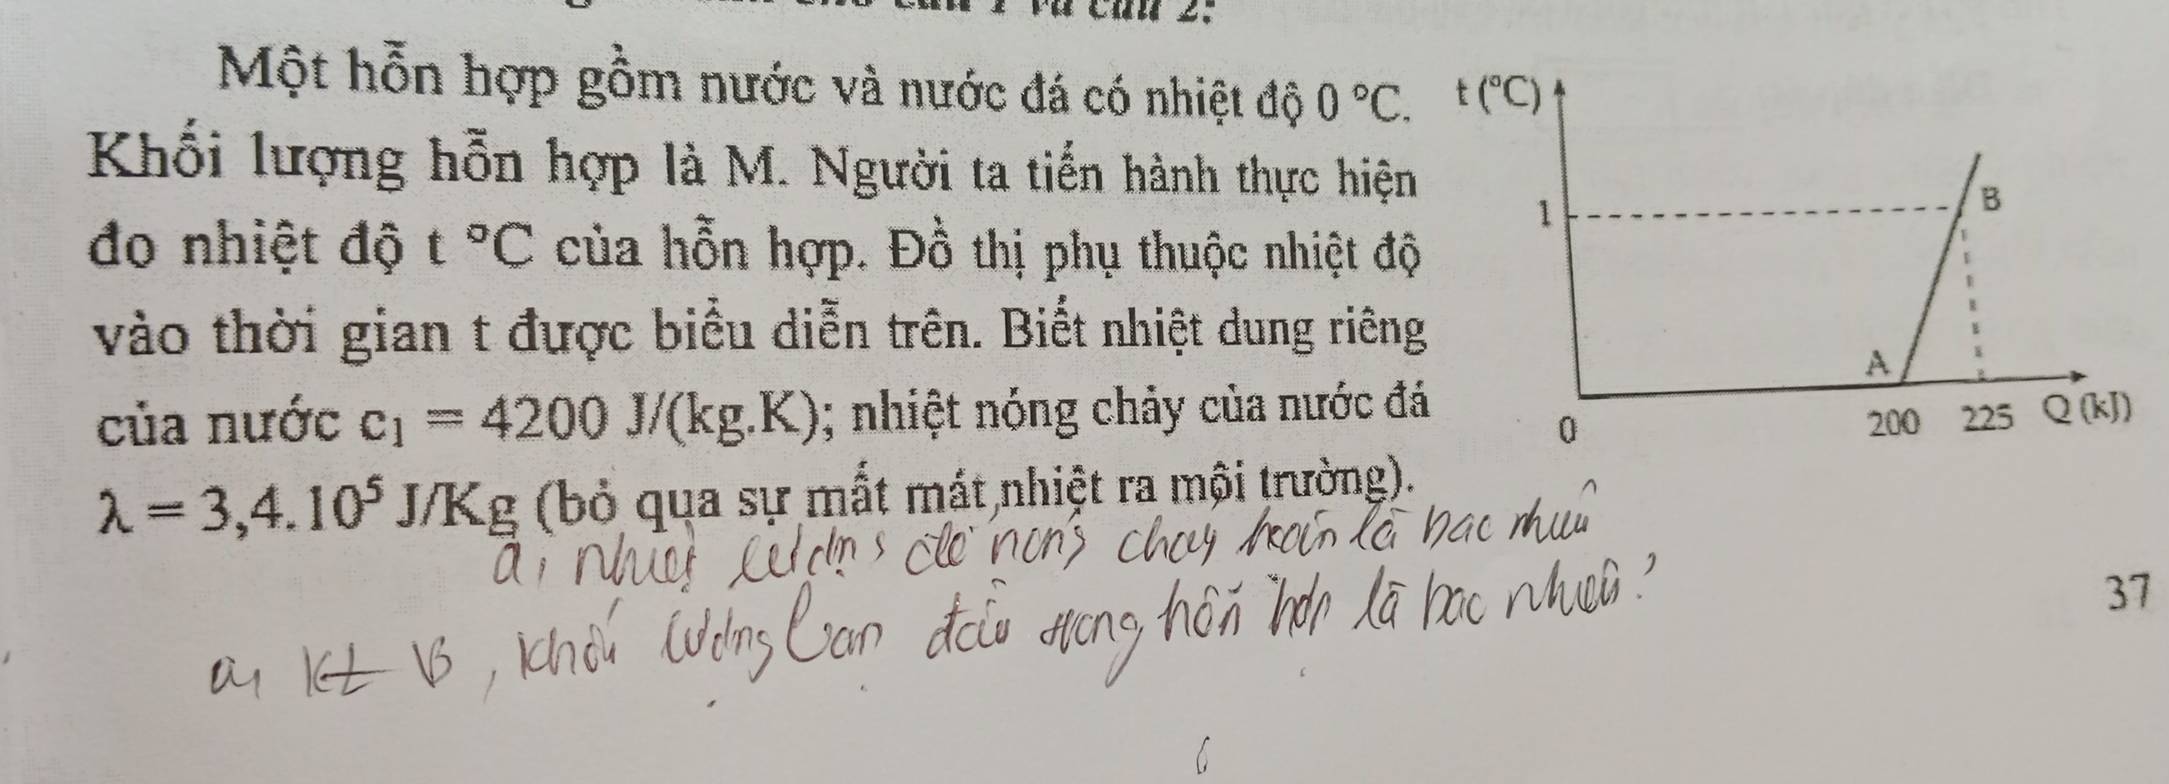 câu 2:
Một hỗn hợp gồm nước và nước đá có nhiệt độ 0 °C.
Khối lượng hỗn hợp là M. Người ta tiến hành thực hiện
đo nhiệt độ t °C của hỗn hợp. Đồ thị phụ thuộc nhiệt độ
vào thời gian t được biểu diễn trên. Biết nhiệt dung riêng
của nước c₁ = 4200 J/(kg.K); nhiệt nóng chảy của nước đá
λ = 3,4.10⁵ J/Kg (bỏ qua sự mất mát nhiệt ra môi trường).
t (°C)
1
B
A
0
200 225 Q (kJ)
a, nhiệt lượng để nóng chảy hoàn là bao nhiêu
37
B, khối lượng ban đầu trong hỗn hợp là bao nhiêu?